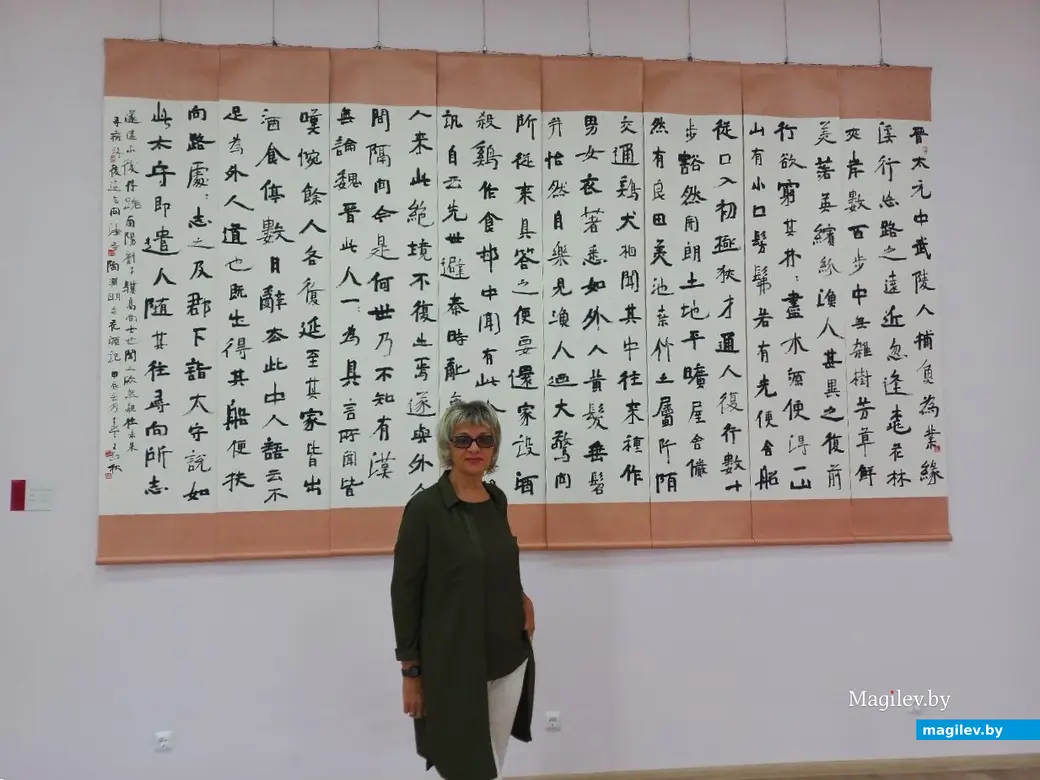 晉太元中武陵人捕魚為業緣
溪行忘路之遠近忽逢桃花林
夾岸數百步中無雜樹芳草鮮
美落英繽紛漁人甚異之復前
行欲窮其林:盡水源便得一山
山有小口髣髴若有光便舍船
從口入初極狹才通人復行數十
步豁然開朗土地平曠屋舍儼
然有良田美池桑竹之屬阡陌
交通鷄犬相聞其中往來種作
男女衣著悉如外人黃髮垂髫
并怡然自樂見漁人迺大驚問
所從來具答之便要還家設酒
殺鷄作食村中聞有此人
訊自云先世避秦時亂
人來此絕境不復出焉遂與外人
間隔問今是何世乃不知有漢
無論魏晉此人一:為具言所聞皆
嘆惋餘人各復延至其家皆出
酒食停數日辭去此中人語云不
足為外人道也既出得其船便扶
向路處:志之及郡下詣太守說如
此太守即遣人隨其往尋向所志
南陽劉子驥高尚士聞之欣然規往未果
尋病終後遂無問津者陶淵明桃花源記甲辰
Magilev.by
magilev.by